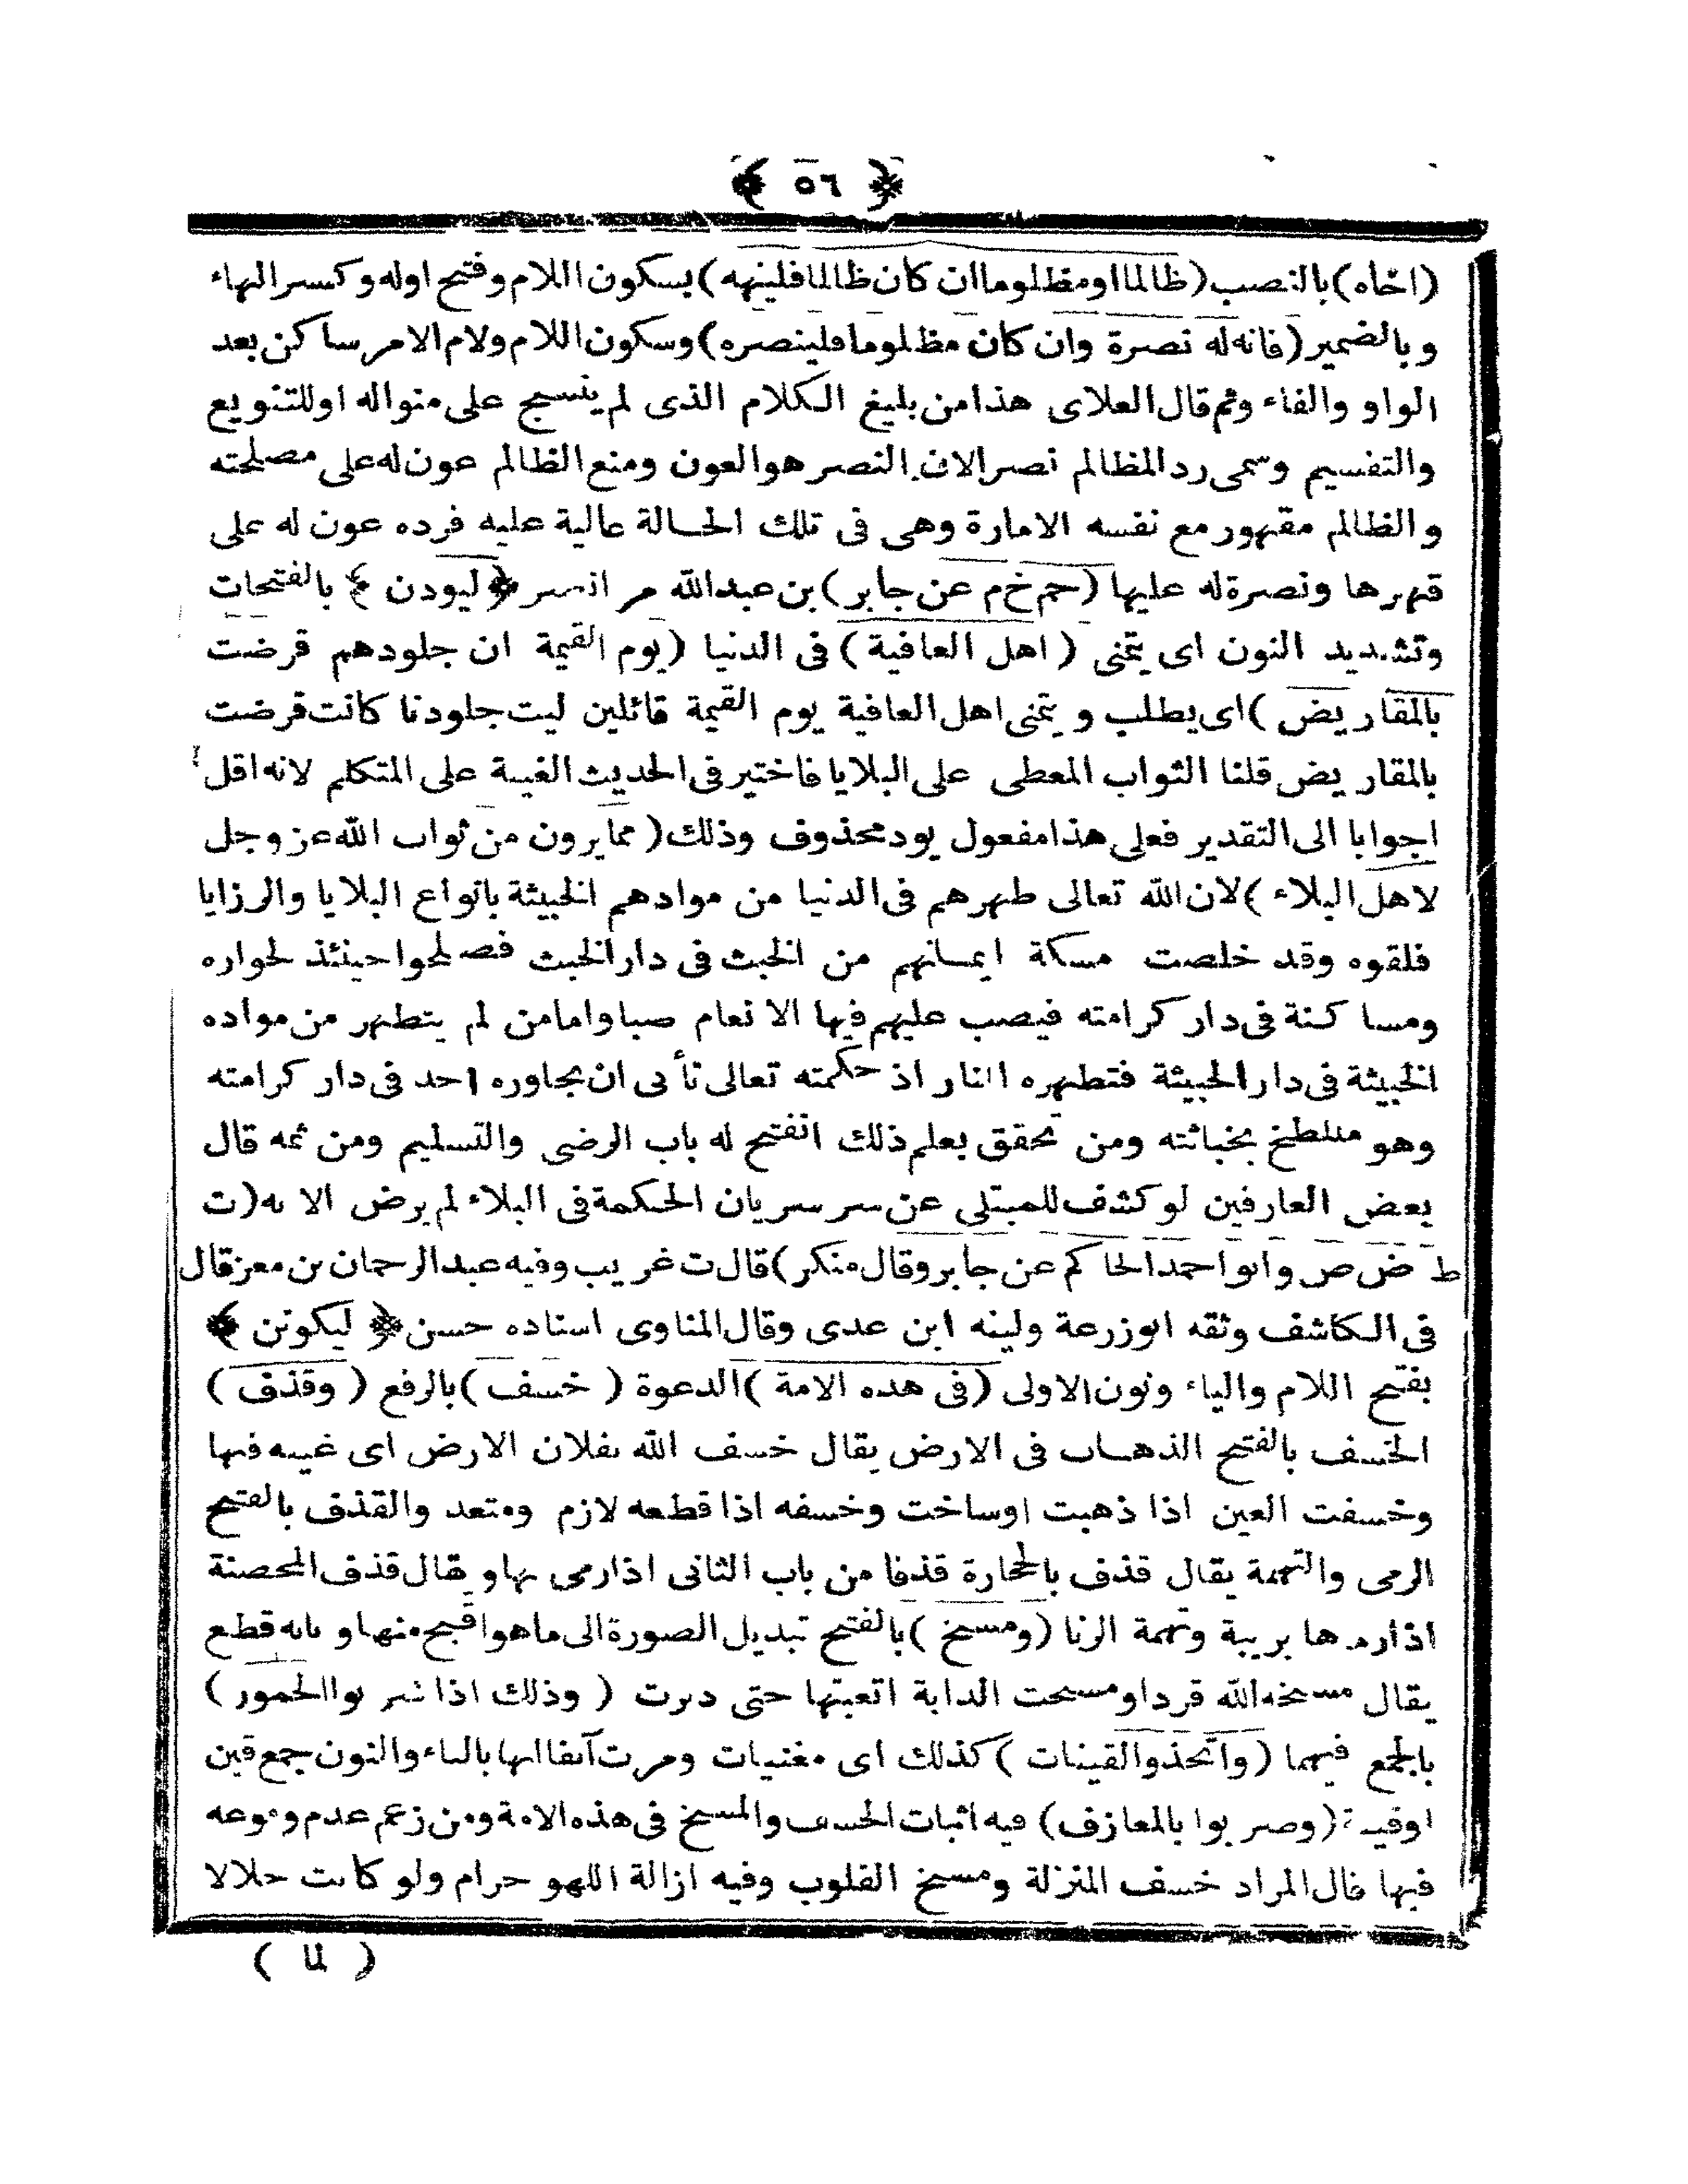 ﴿ ٥٦ ﴾
(اخاه) بالنصب (ظالما او مظلوما ان كان ظالما فلينهه) بسكون اللام وفتح اوله وكسر الهاء
وبالضمير (فانه له نصرة وان كان مظلوما فلينصره) وسكون اللام ولام الامر ساكن بعد
الواو والفاء وثم قال العلاى هذا من بليغ الكلام الذى لم ينسج على منواله او للتنويع
والتفسيم وسمى رد المظالم نصرا لان النصر هو العون ومنع الظالم عون له على مصلحته
والظالم مقهور مع نفسه الامارة وهى فى تلك الحالة عالية عليه فرده عون له على
قهرها ونصرة له عليها (حم خ م عن جابر) بن عبدالله مر انصر ﴿ ليودن ﴾ بالفتحات
وتشديد النون اى يتمنى (اهل العافية) فى الدنيا (يوم القيمة ان جلودهم قرضت
بالمقاريض) اى يطلب ويتمنى اهل العافية يوم القيمة قائلين ليت جلودنا كانت قرضت
بالمقاريض قلنا الثواب المعطى على البلايا فاختير فى الحديث الغيبة على المتكلم لانه اقل
اجوابا الى التقدير فعلى هذا مفعول يود محذوف وذلك (مما يرون من ثواب الله عز وجل
لاهل البلاء) لان الله تعالى طهرهم فى الدنيا من موادهم الخبيثة بانواع البلايا والرزايا
فلقوه وقد خلصت مسكة ايمانهم من الخبث فى دار الخبث فصلحوا حينئذ لجواره
ومساكنة فى دار كرامته فيصب عليهم فيها الانعام صبا واما من لم يتطهر من مواده
الخبيثة فى دار الخبيثة فتطهره النار اذ حكمته تعالى تأبى ان يجاوره احد فى دار كرامته
وهو متلطخ بخبائثه ومن تحقق بعلم ذلك انفتح له باب الرضى والتسليم ومن ثمه قال
بعض العارفين لو كشف للمبتلى عن سر سريان الحكمة فى البلاء لم يرض الا به (ت
ط ض ص وابو احمد الحاكم عن جابر وقال منكر) قال ت غريب وفيه عبد الرحمان بن معز قال
فى الكاشف وثقه ابو زرعة ولينه ابن عدى وقال المناوى اسناده حسن ﴿ ليكونن ﴾
بفتح اللام والياء ونون الاولى (فى هذه الامة) الدعوة (خسف) بالرفع (وقذف)
الخسف بالفتح الذهاب فى الارض يقال خسف الله بفلان الارض اى غيبه فيها
وخسفت العين اذا ذهبت او ساخت وخسفه اذا قطعه لازم ومتعد والقذف بالفتح
الرمى والتهمة يقال قذف بالحجارة قذفا من باب الثانى اذا رمى بها ويقال قذف المحصنة
اذا رمـها بريبة وتهمة الزنا (ومسخ) بالفتح تبديل الصورة الى ما هو اقبح منها وبابه قطع
يقال مسخه الله قردا ومسخت الدابة اتعبتها حتى دبرت (وذلك اذا شربوا الخمور)
بالجمع فيهما (واتخذوا القينات) كذلك اى مغنيات ومرت آنفا انها بالياء والنون جمع قين
او قينة (وضربوا بالمعازف) فيه اثبات الخسف والمسخ فى هذه الامة ومن زعم عدم وقوعه
فيها قال المراد خسف المنزلة ومسخ القلوب وفيه ازالة اللهو حرام ولو كانت حلالا
( لما )